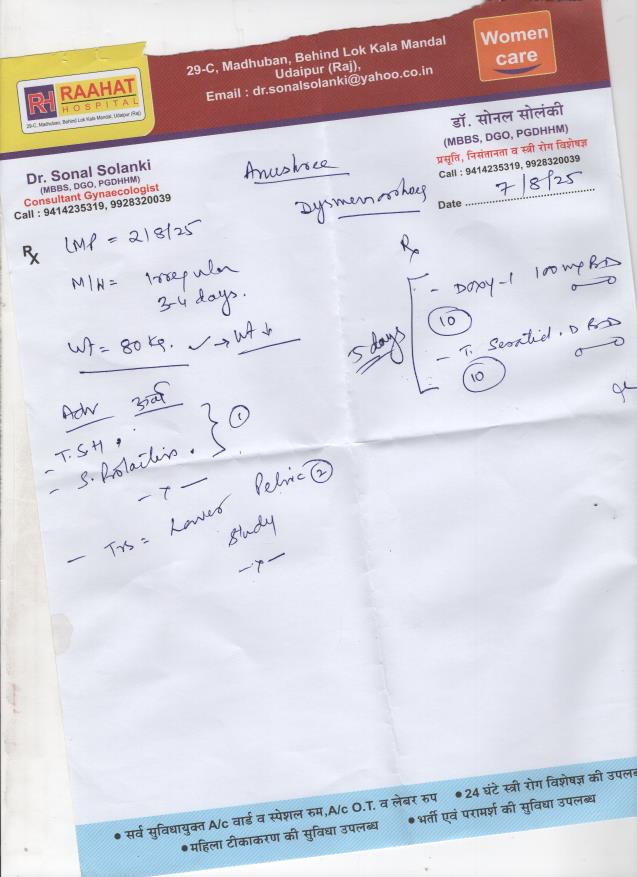 29-C, Madhuban, Behind Lok Kala Mandal
Udaipur (Raj),
Email : dr.sonalsolanki@yahoo.co.in
Women
care
RH RAAHAT
HOSPITAL
29-C, Madhuban, Behind Lok Kala Mandal, Udaipur (Raj)
Dr. Sonal Solanki
(MBBS, DGO, PGDHHM)
Consultant Gynaecologist
Call : 9414235319, 9928320039
डॉ. सोनल सोलंकी
(MBBS, DGO, PGDHHM)
प्रसूति, निसंतानता व स्त्री रोग विशेषज्ञ
Call : 9414235319, 9928320039
Date 7/8/25
Anushree
Dysmenorrhoea
Rx
LMP = 2/8/25
M/H = Irregular
3-4 days.
Wt = 80 Kg. ✓ → Wt ↓
Adv
- T.S.H.
- S. Prolactin. } 1
- x -
- Tvs = Lower Pelvic 2
Study
- x -
Rx
- Doxy-1 100 mg BD
10
5 days
- T. D BD
10
• सर्व सुविधायुक्त A/c वार्ड व स्पेशल रुम, A/c O.T. व लेबर रुप • 24 घंटे स्त्री रोग विशेषज्ञ की उपलब
• महिला टीकाकरण की सुविधा उपलब्ध • भर्ती एवं परामर्श की सुविधा उपलब्ध